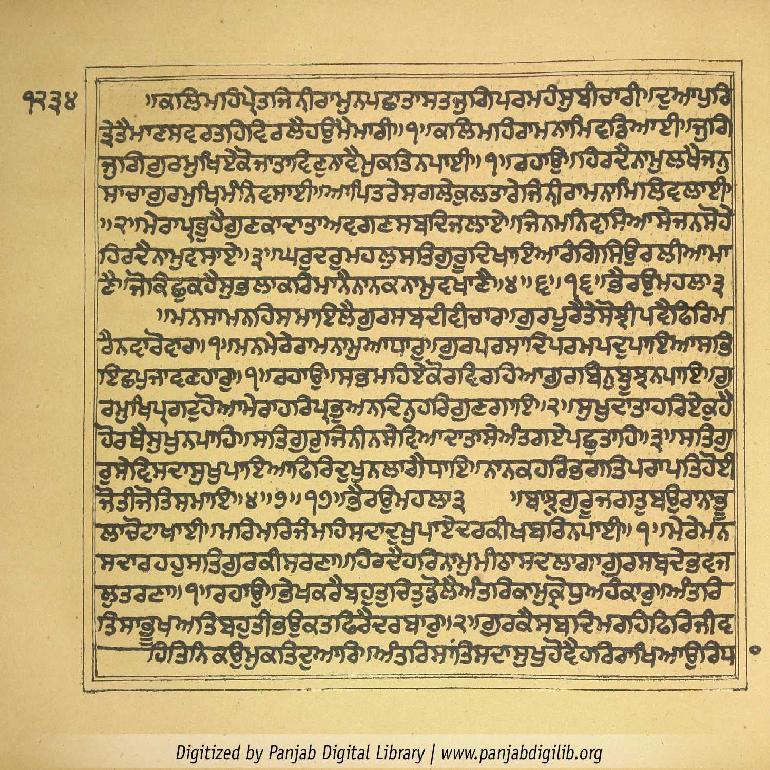 ੧੨੩੪
॥ਕਲਿਮਹਿਪ੍ਰੇਤਜਿਨੀਰਾਮੁਨਪਛਾਤਾਸਤਜੁਗਿਪਰਮਹੰਸੁਬੀਚਾਰੀ॥ਦੁਆਪੁਰਿ
ਤ੍ਰੇਤੈਮਾਣਸਵਰਤਹਿਵਿਰਲੈਹਉਮੈਮਾਰੀ॥੧॥ਕਲਿਮਹਿਰਾਮਨਾਮਿਵਡਿਆਈ॥ਜੁਗਿ
ਜੁਗਿਗੁਰਮੁਖਿਏਕੋਜਾਤਾਵਿਣੁਨਾਵੈਮੁਕਤਿਨਪਾਈ॥੧॥ਰਹਾਉ॥ਹਿਰਦੈਨਾਮੁਲਖੈਜਨੁ
ਸਾਚਾਗੁਰਮੁਖਿਮੰਨਿਵਸਾਈ॥ਆਪਿਤਰੇਸਗਲੇਕੁਲਤਾਰੇਜਿਨੀਰਾਮਨਾਮਿਲਿਵਲਾਈ
॥੨॥ਮੇਰਾਪ੍ਰਭੁਹੈਗੁਣਕਾਦਾਤਾਅਵਗਣਸਬਦਿਜਲਾਏ॥ਜਿਨਮਨਿਵਸਿਆਸੇਜਨਸੋਹੇ
ਹਿਰਦੈਨਾਮੁਵਸਾਏ॥੩॥ਘਰੁਦਰੁਮਹਲੁਸਤਿਗੁਰੂਦਿਖਾਇਆਰੰਗਿਸਿਉਰਲੀਆਮਾ
ਣੈ॥ਜੋਕਿਛੁਕਹੈਸੁਭਲਾਕਰਿਮਾਨੈਨਾਨਕਨਾਮੁਵਖਾਣੈ॥੪॥੬॥੧੬॥ਭੈਰਉਮਹਲਾ੩
॥ਮਨਸਾਮਨਹਿਸਮਾਇਲੈਗੁਰਸਬਦੀਵੀਚਾਰ॥ਗੁਰਪੂਰੇਤੇਸੋਝੀਪਵੈਫਿਰਿਮ
ਰੈਨਵਾਰੋਵਾਰ॥੧॥ਮਨਮੇਰੇਰਾਮਨਾਮੁਆਧਾਰੁ॥ਗੁਰਪਰਸਾਦਿਪਰਮਪਦੁਪਾਇਆਸਭ
ਇਛਪੁਜਾਵਣਹਾਰੁ॥੧॥ਰਹਾਉ॥ਸਭਮਹਿਏਕੋਰਵਿਰਹਿਆਗੁਰਬਿਨੁਬੂਝਨਪਾਇ॥ਗੁ
ਰਮੁਖਿਪ੍ਰਗਟੁਹੋਆਮੇਰਾਹਰਿਪ੍ਰਭੁਅਨਦਿਨੁਹਰਿਗੁਣਗਾਇ॥੨॥ਸੁਖਦਾਤਾਹਰਿਏਕੁਹੈ
ਹੋਰਥੈਸੁਖੁਨਪਾਹਿ॥ਸਤਿਗੁਰੁਜਿਨੀਨਸੇਵਿਆਦਾਤਾਸੇਅੰਤਿਗਏਪਛੁਤਾਹਿ॥੩॥ਸਤਿਗੁ
ਰੁਸੇਵਿਸਦਾਸੁਖੁਪਾਇਆਫਿਰਿਦੁਖੁਨਲਾਗੈਧਾਇ॥ਨਾਨਕਹਰਿਭਗਤਿਪਰਾਪਤਿਹੋਈ
ਜੋਤੀਜੋਤਿਸਮਾਇ॥੪॥੭॥੧੭॥ਭੈਰਉਮਹਲਾ੩ ॥ਬਾਝੁਗੁਰੂਜਗਤੁਬਉਰਾਨਾਭੂ
ਲਾਚੋਟਾਖਾਈ॥ਮਰਿਮਰਿਜੰਮਹਿਸਦਾਦੁਖੁਪਾਏਦਰਕੀਖਬਰਿਨਪਾਈ॥੧॥ਮੇਰੇਮਨ
ਸਦਾਰਹਹੁਸਤਿਗੁਰਕੀਸਰਣਾ॥ਹਿਰਦੈਹਰਿਨਾਮੁਮੀਠਾਸਦਲਾਗਾਗੁਰਸਬਦੇਭਵਜ
ਲੁਤਰਣਾ॥੧॥ਰਹਾਉ॥ਭੇਖਕਰੈਬਹੁਤੁਚਿਤੁਡੋਲੈਅੰਤਰਿਕਾਮੁਕ੍ਰੋਧੁਅਹੰਕਾਰੁ॥ਅੰਤਰਿ
ਤਿਸਾਭੂਖਅਤਿਬਹੁਤੀਭਉਕਤਫਿਰੈਦਰਬਾਰੁ॥੨॥ਗੁਰਕੈਸਬਦਿਮਰਹਿਫਿਰਿਜੀਵ
ਹਿਤਿਨਕਉਮੁਕਤਿਦੁਆਰਿ॥ਅੰਤਰਿਸਾਂਤਿਸਦਾਸੁਖੁਹੋਵੈਹਰਿਰਾਖਿਆਉਰਧਿ
Digitized by Panjab Digital Library | www.panjabdigilib.org